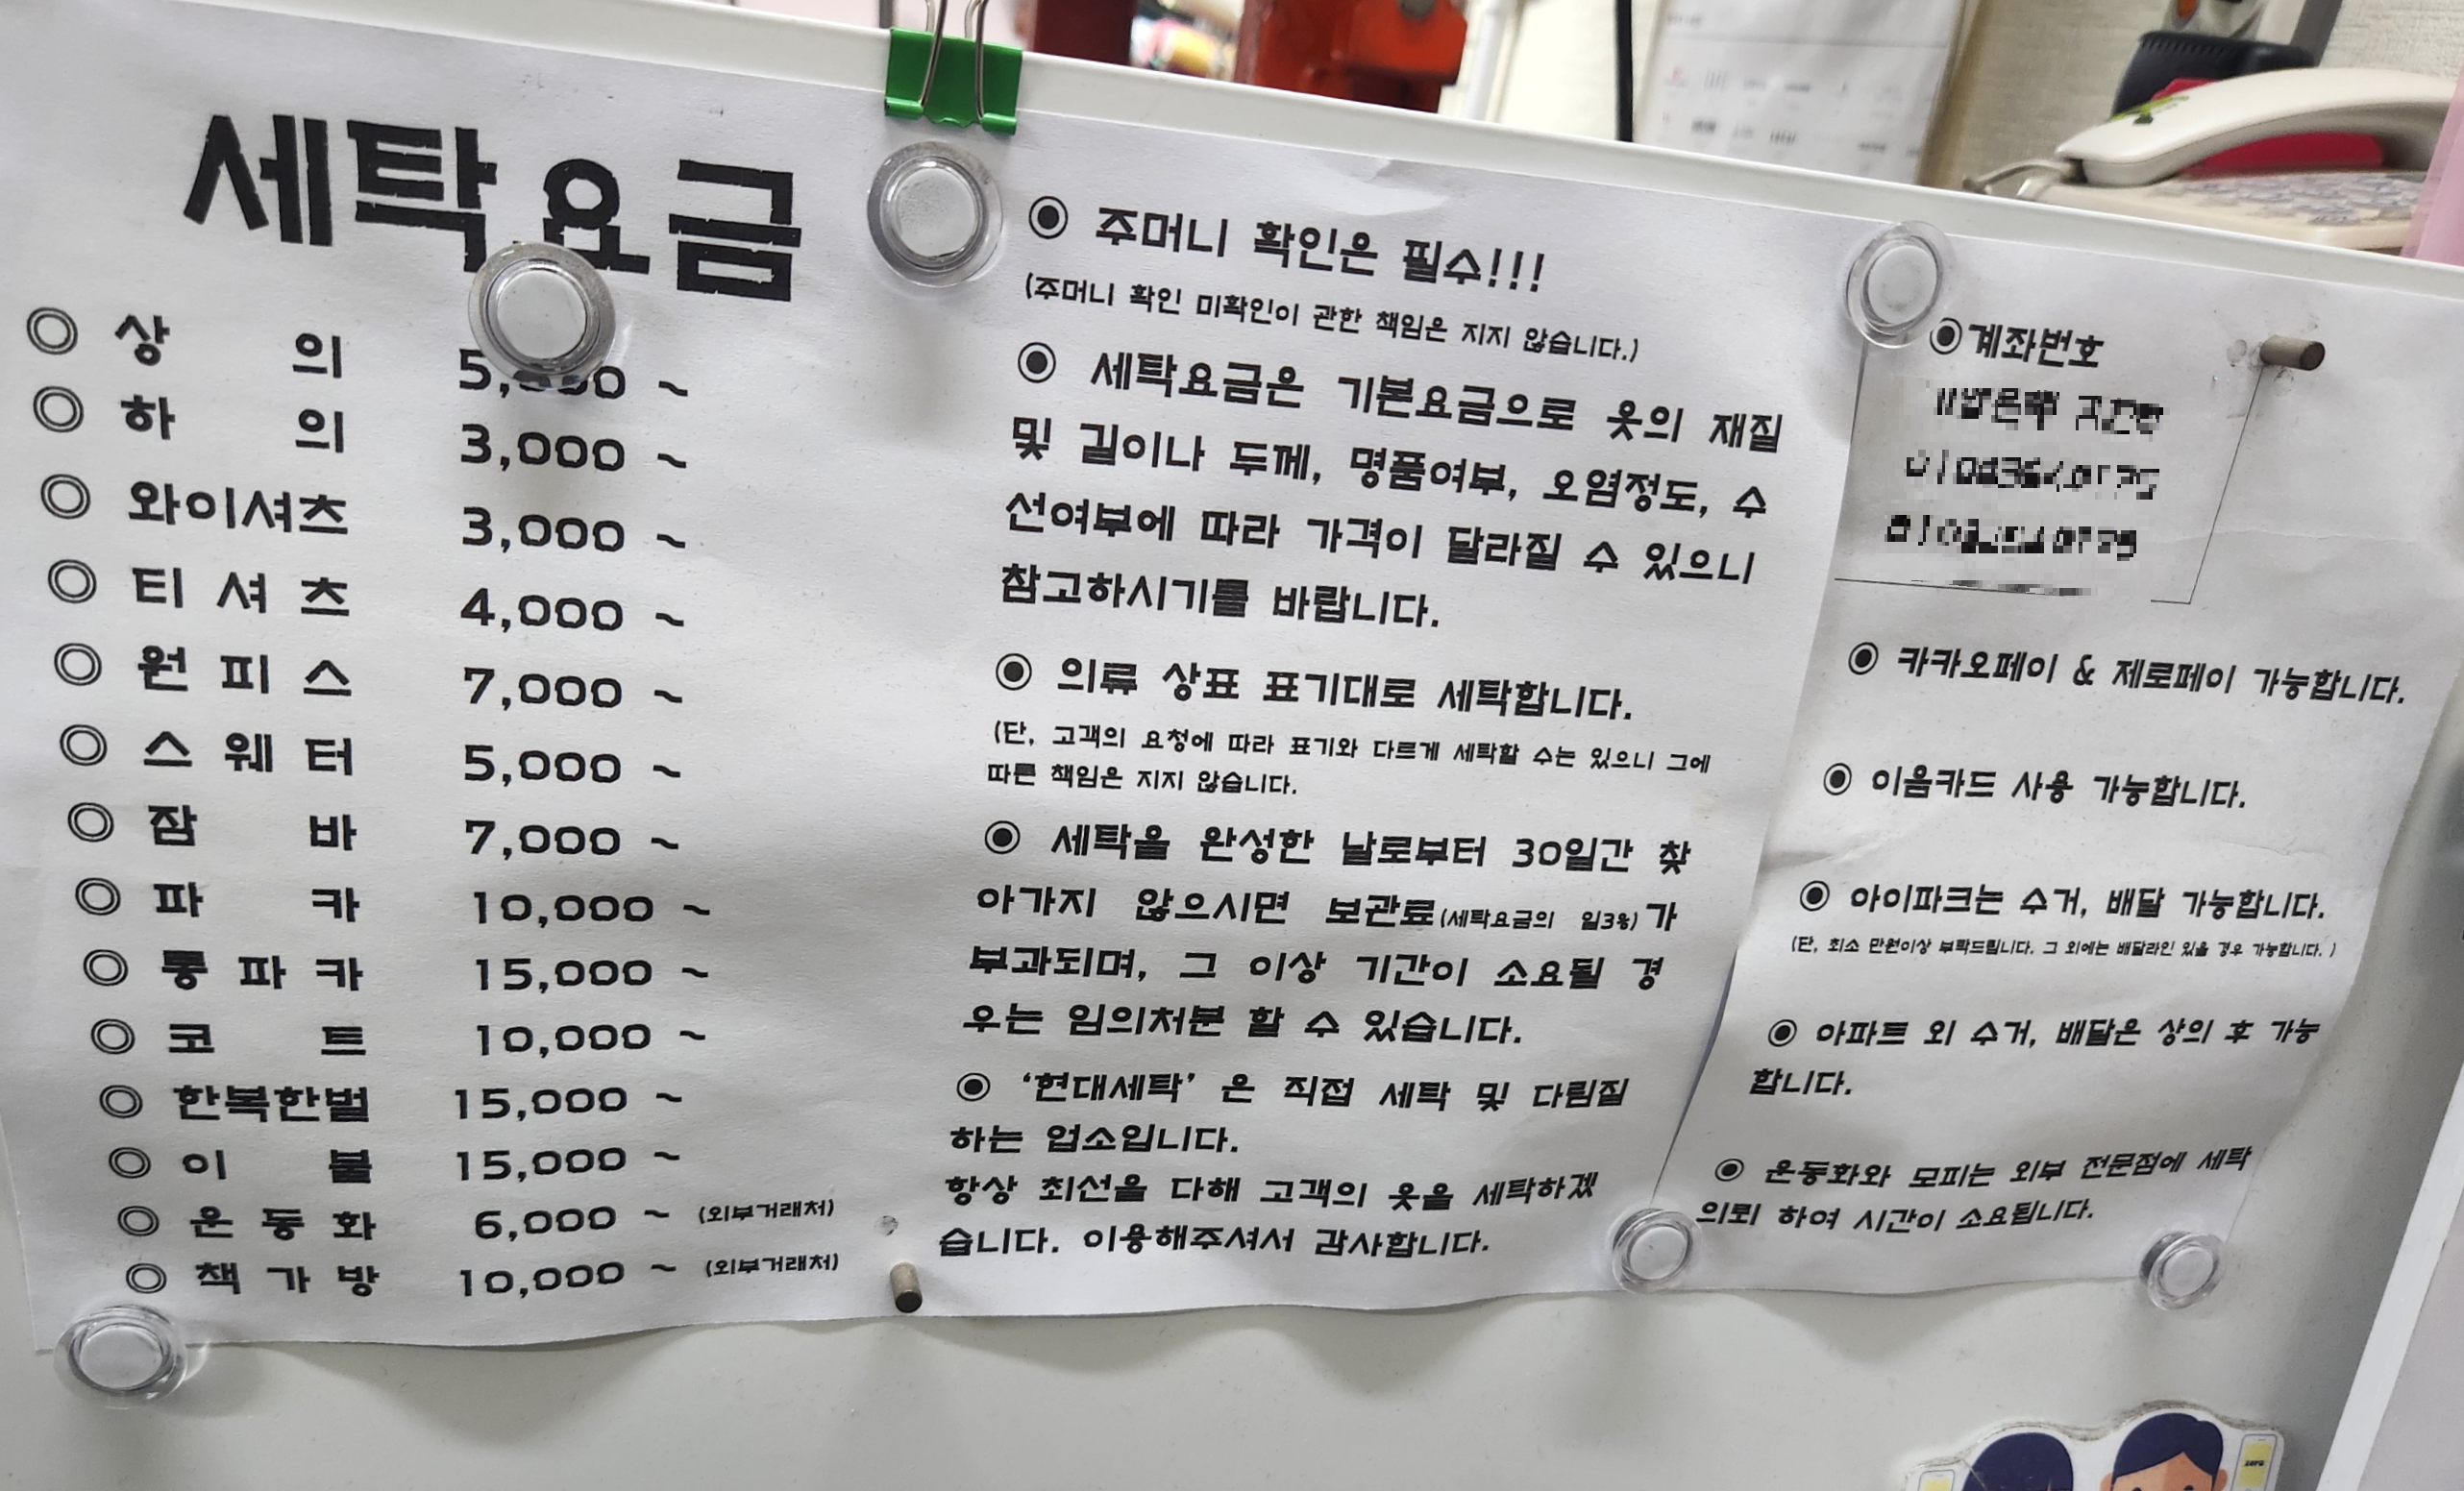 세탁요금
◎ 상 의 5,000 ~
◎ 하 의 3,000 ~
◎ 와이셔츠 3,000 ~
◎ 티 셔 츠 4,000 ~
◎ 원 피 스 7,000 ~
◎ 스 웨 터 5,000 ~
◎ 잠 바 7,000 ~
◎ 파 카 10,000 ~
◎ 롱 파 카 15,000 ~
◎ 코 트 10,000 ~
◎ 한복한벌 15,000 ~
◎ 이 불 15,000 ~
◎ 운 동 화 6,000 ~ (외부거래처)
◎ 책 가 방 10,000 ~ (외부거래처)
◉ 주머니 확인은 필수!!!
(주머니 확인 미확인이 관한 책임은 지지 않습니다.)
◉ 세탁요금은 기본요금으로 옷의 재질
및 길이나 두께, 명품여부, 오염정도, 수
선여부에 따라 가격이 달라질 수 있으니
참고하시기를 바랍니다.
◉ 의류 상표 표기대로 세탁합니다.
(단, 고객의 요청에 따라 표기와 다르게 세탁할 수는 있으니 그에
따른 책임은 지지 않습니다.
◉ 세탁을 완성한 날로부터 30일간 찾
아가지 않으시면 보관료(세탁요금의 일3%)가
부과되며, 그 이상 기간이 소요될 경
우는 임의처분 할 수 있습니다.
◉ '현대세탁' 은 직접 세탁 및 다림질
하는 업소입니다.
항상 최선을 다해 고객의 옷을 세탁하겠
습니다. 이용해주셔서 감사합니다.
◉계좌번호
◉ 카카오페이 & 제로페이 가능합니다.
◉ 이음카드 사용 가능합니다.
◉ 아이파크는 수거, 배달 가능합니다.
(단, 최소 만원이상 부탁드립니다. 그 외에는 배달라인 있을 경우 가능합니다. )
◉ 아파트 외 수거, 배달은 상의 후 가능
합니다.
◉ 운동화와 모피는 외부 전문점에 세탁
의뢰 하여 시간이 소요됩니다.